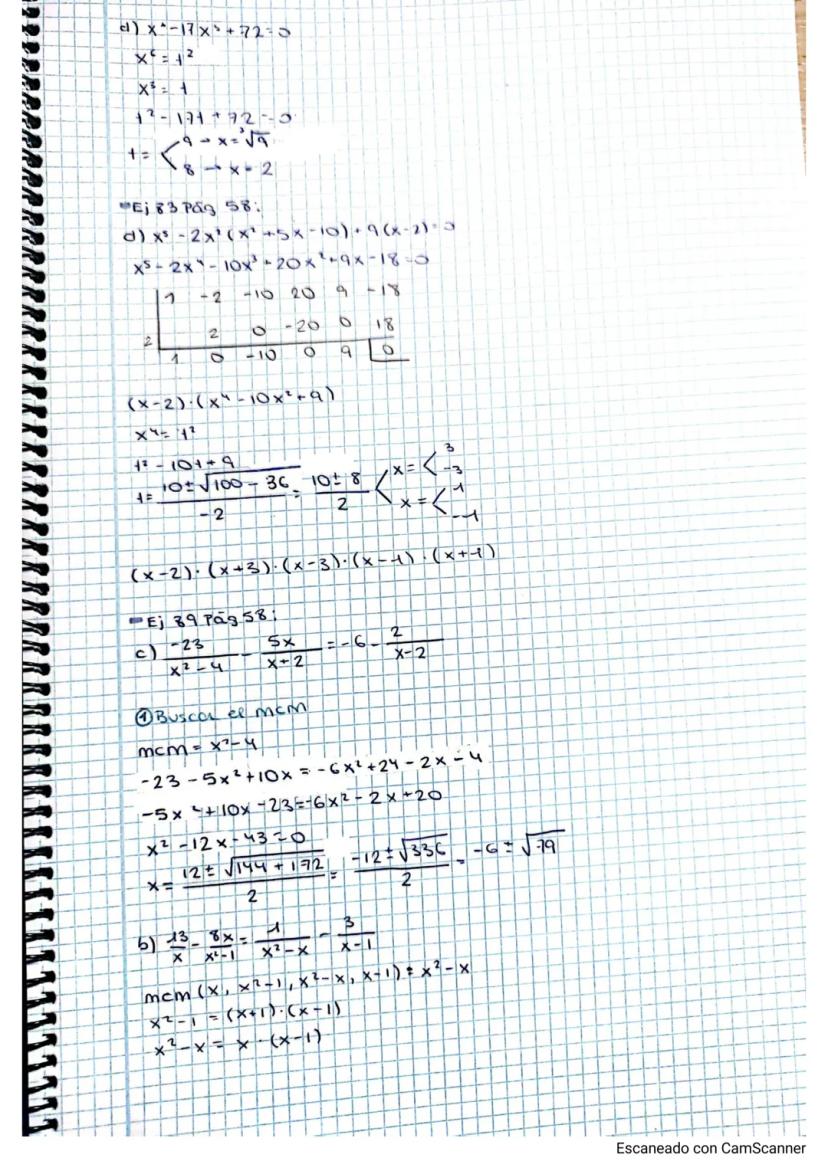 d) x⁶ - 17x³ + 72 = 0
x⁶ = t²
x³ = t
t² - 17t + 72 = 0
t = < 9 → x = ³√9
8 → x = 2
Ej 83 Pág 58:
d) x⁵ - 2x²(x² + 5x - 10) + 9(x - 2) = 0
x⁵ - 2x⁴ - 10x³ + 20x² + 9x - 18 = 0
1 -2 -10 20 9 -18
2 2 0 -20 0 18
1 0 -10 0 9 0
(x-2)·(x⁴ - 10x² + 9)
x⁴ = t²
t² - 10t + 9
t = (10 ± √100 - 36) / -2 = (10 ± 8) / 2 < x = < 3 -3
x = < 1 -1
(x-2)·(x+3)·(x-3)·(x-1)·(x+1)
Ej 89 Pág 58:
c) -23/(x²-4) - 5x/(x+2) = -6 - 2/(x-2)
① Buscar el mcm
mcm = x²-4
-23 - 5x² + 10x = -6x² + 24 - 2x - 4
-5x² + 10x - 23 = -6x² - 2x + 20
x² - 12x - 43 = 0
x = (12 ± √144 + 172) / 2 = (-12 ± √336) / 2 = -6 ± √79
b) 13/x - 8x/(x²-1) = 1/(x²-x) - 3/(x-1)
mcm (x, x²-1, x²-x, x-1) = x²-x
x²-1 = (x+1)·(x-1)
x²-x = x·(x-1)
Escaneado con CamScanner